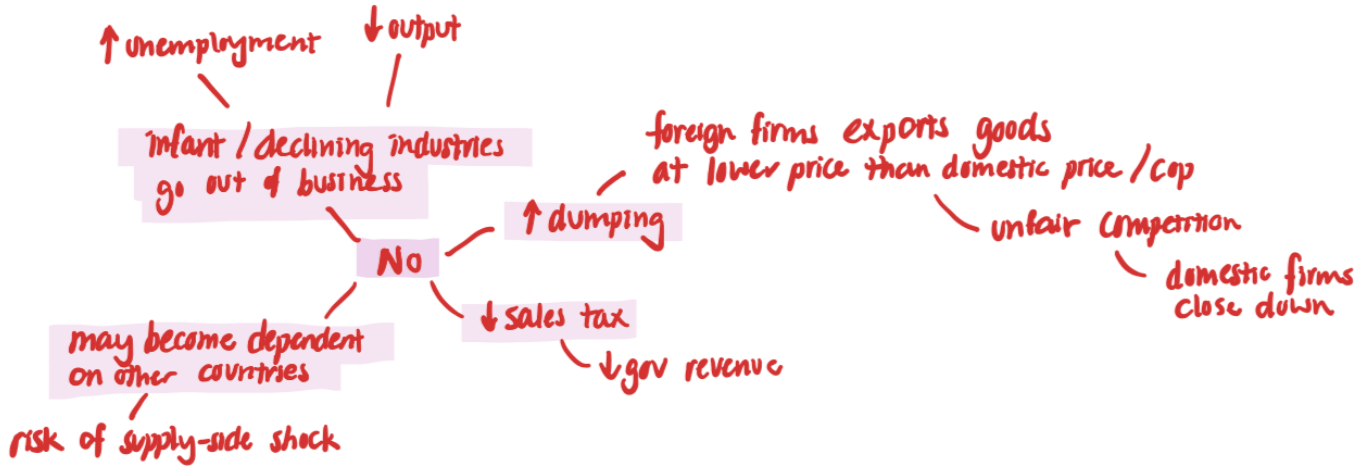 ↑ unemployment
↓ output
infant / declining industries
go out of business
foreign firms exports goods
at lower price than domestic price / cop
↑ dumping
unfair competition
domestic firms
close down
No
↓ sales tax
↓ gov revenue
may become dependent
on other countries
risk of supply-side shock